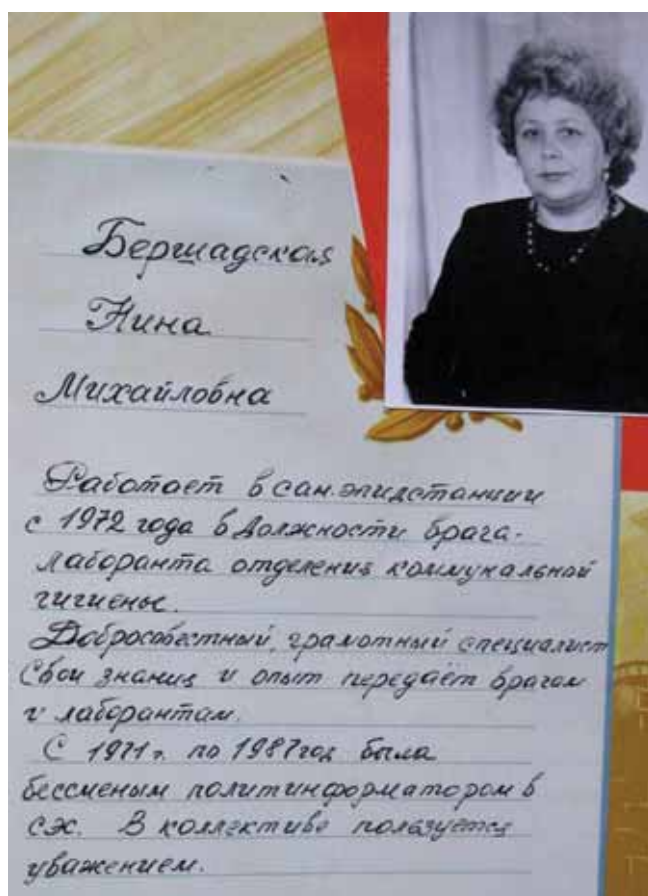 Бершадская
Нина
Михайловна
Работает в сан.эпидстанции
с 1972 года в должности врача-
лаборанта отделения коммунальной
гигиены.
Добросовестный, грамотный специалист
Свои знания и опыт передаёт врачам
и лаборантам.
С 1971 г. по 1987 год была
бессменым политинформатором в
сэс. В коллективе пользуется
уважением.